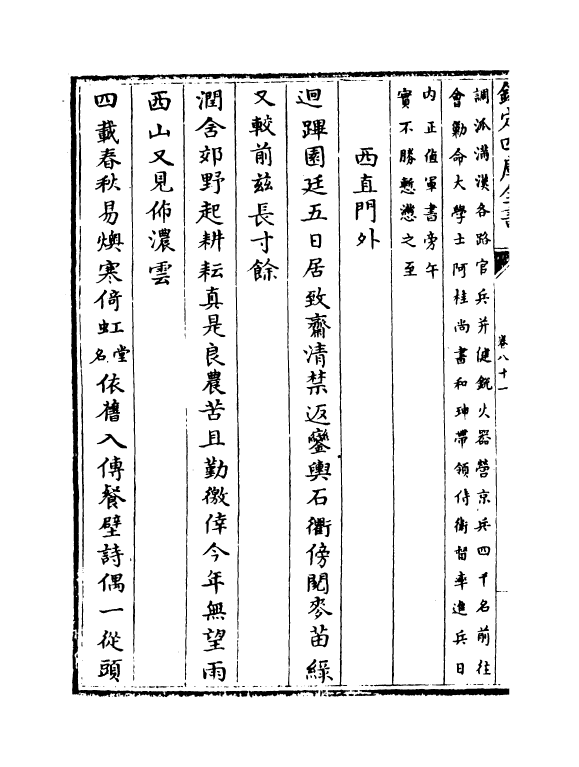 欽定四庫全書
卷八十一
調派滿漢各路官兵并健銳火器營京兵四千名前往
會勦命大學士阿桂尚書和珅帶領侍衛督率進兵日
内正值軍書旁午
實不勝慙懣之至
西直門外
迴蹕園廷五日居致齋清禁返鑾輿石衢傍閱麥苗緑
又較前兹長寸餘
潤含郊野起耕耘真是良農苦且勤徼倖今年無望雨
西山又見佈濃雲
四載春秋易燠寒倚虹堂名依舊入傳餐壁詩偶一從頭